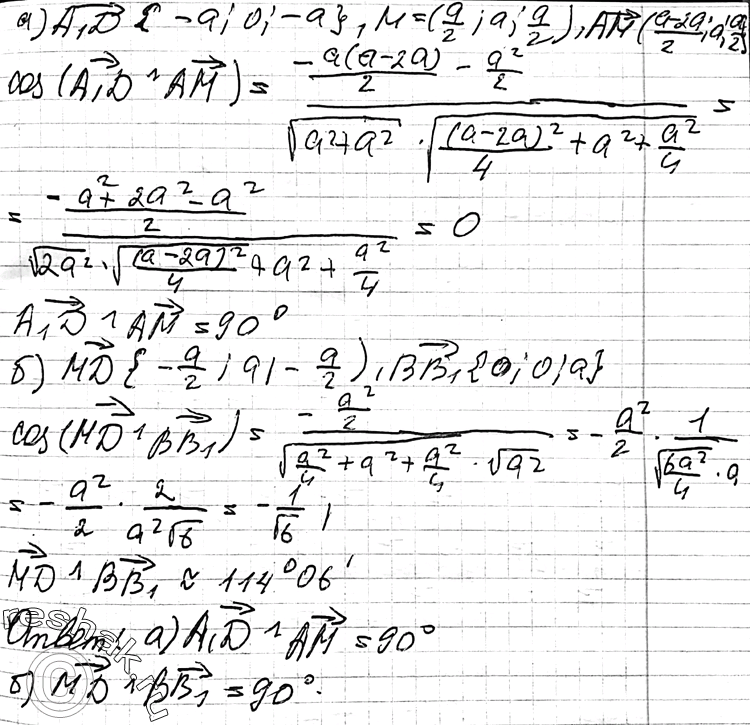 а) A₁D⃗ {-a; 0; -a}, M = (a/2; a; a/2), AM⃗ {(a-2a)/2; a; a/2}
cos(A₁D⃗ ^ AM⃗) = (-a(a-2a)/2 - a²/2) / (√(a²+a²) · √((a-2a)²/4 + a² + a²/4)) =
= ((-a²+2a²-a²)/2) / (√(2a²) · √((a-2a)²/4 + a² + a²/4)) = 0
A₁D⃗ ^ AM⃗ = 90°
б) MD⃗ {-a/2; a; -a/2), BB₁⃗ {0; 0; a}
cos(MD⃗ ^ BB₁⃗) = (-a²/2) / (√(a²/4 + a² + a²/4) · √a²) = -a²/2 · 1/(√(6a²/4) · a
= -a²/2 · 2/(a²√6) = -1/√6;
MD⃗ ^ BB₁⃗ ≈ 114°06′
Ответ: а) A₁D⃗ ^ AM⃗ = 90°
б) MD⃗ ^ BB₁⃗ = 90°.
reshak.ru